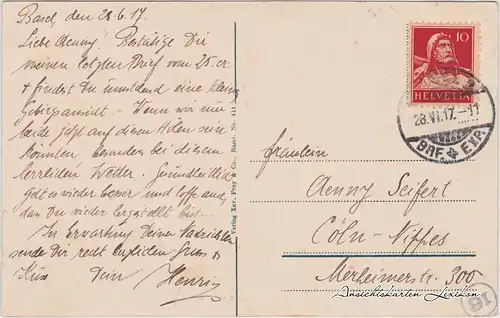 Basel, den 28.6.17.
Liebe Aenny! Bestätige Dir
meinen letzten Brief vom 25. cr.
& findest Du umstehend eine kleine
Gebirgsansicht. - Wenn wir nur
beide jetzt auf diesen Höhen sein
könnten, besonders bei diesem
herrlichen Wetter.
geht es wieder besser und hoffe auch,
dass Du wieder hergestellt bist. -
In Erwartung Deiner Nachrichten
sende Dir recht herzlichen Gruss &
Kuss Dein Henri
Verlag Xav. Frey & Co., Basel. No. 411
10
HELVETIA
28.VI.17.-11
BRF. & EXP.
Fräulein
Aenny Seifert
Cöln-Nippes
Merheimerstr. 300
Ansichtskarten Lexikon
16